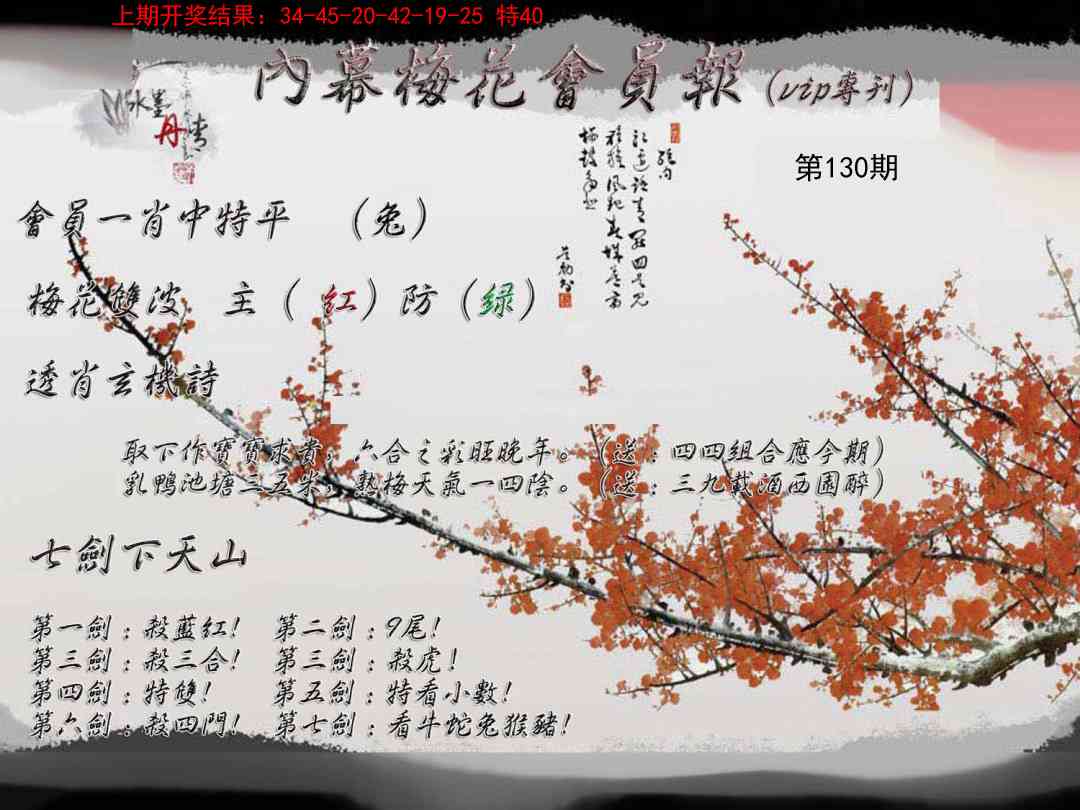 上期开奖结果：34-45-20-42-19-25 特40
內幕梅花會員報（vip專刊）
水墨
丹青
第130期
會員一肖中特平　（兔）
梅花雙波　主（ 紅）防（綠）
透肖玄機詩
取下作寶寶求貴，六合之彩旺晚年。（送：四四組合應今期）
乳鴨池塘三五米，熟梅天氣一四陰。（送：三九載酒西園醉）
七劍下天山
第一劍：殺藍紅！　第二劍：9尾！
第三劍：殺三合！　第三劍：殺虎！
第四劍：特雙！　第五劍：特看小數！
第六劍：殺四門！　第七劍：看牛蛇兔猴豬！